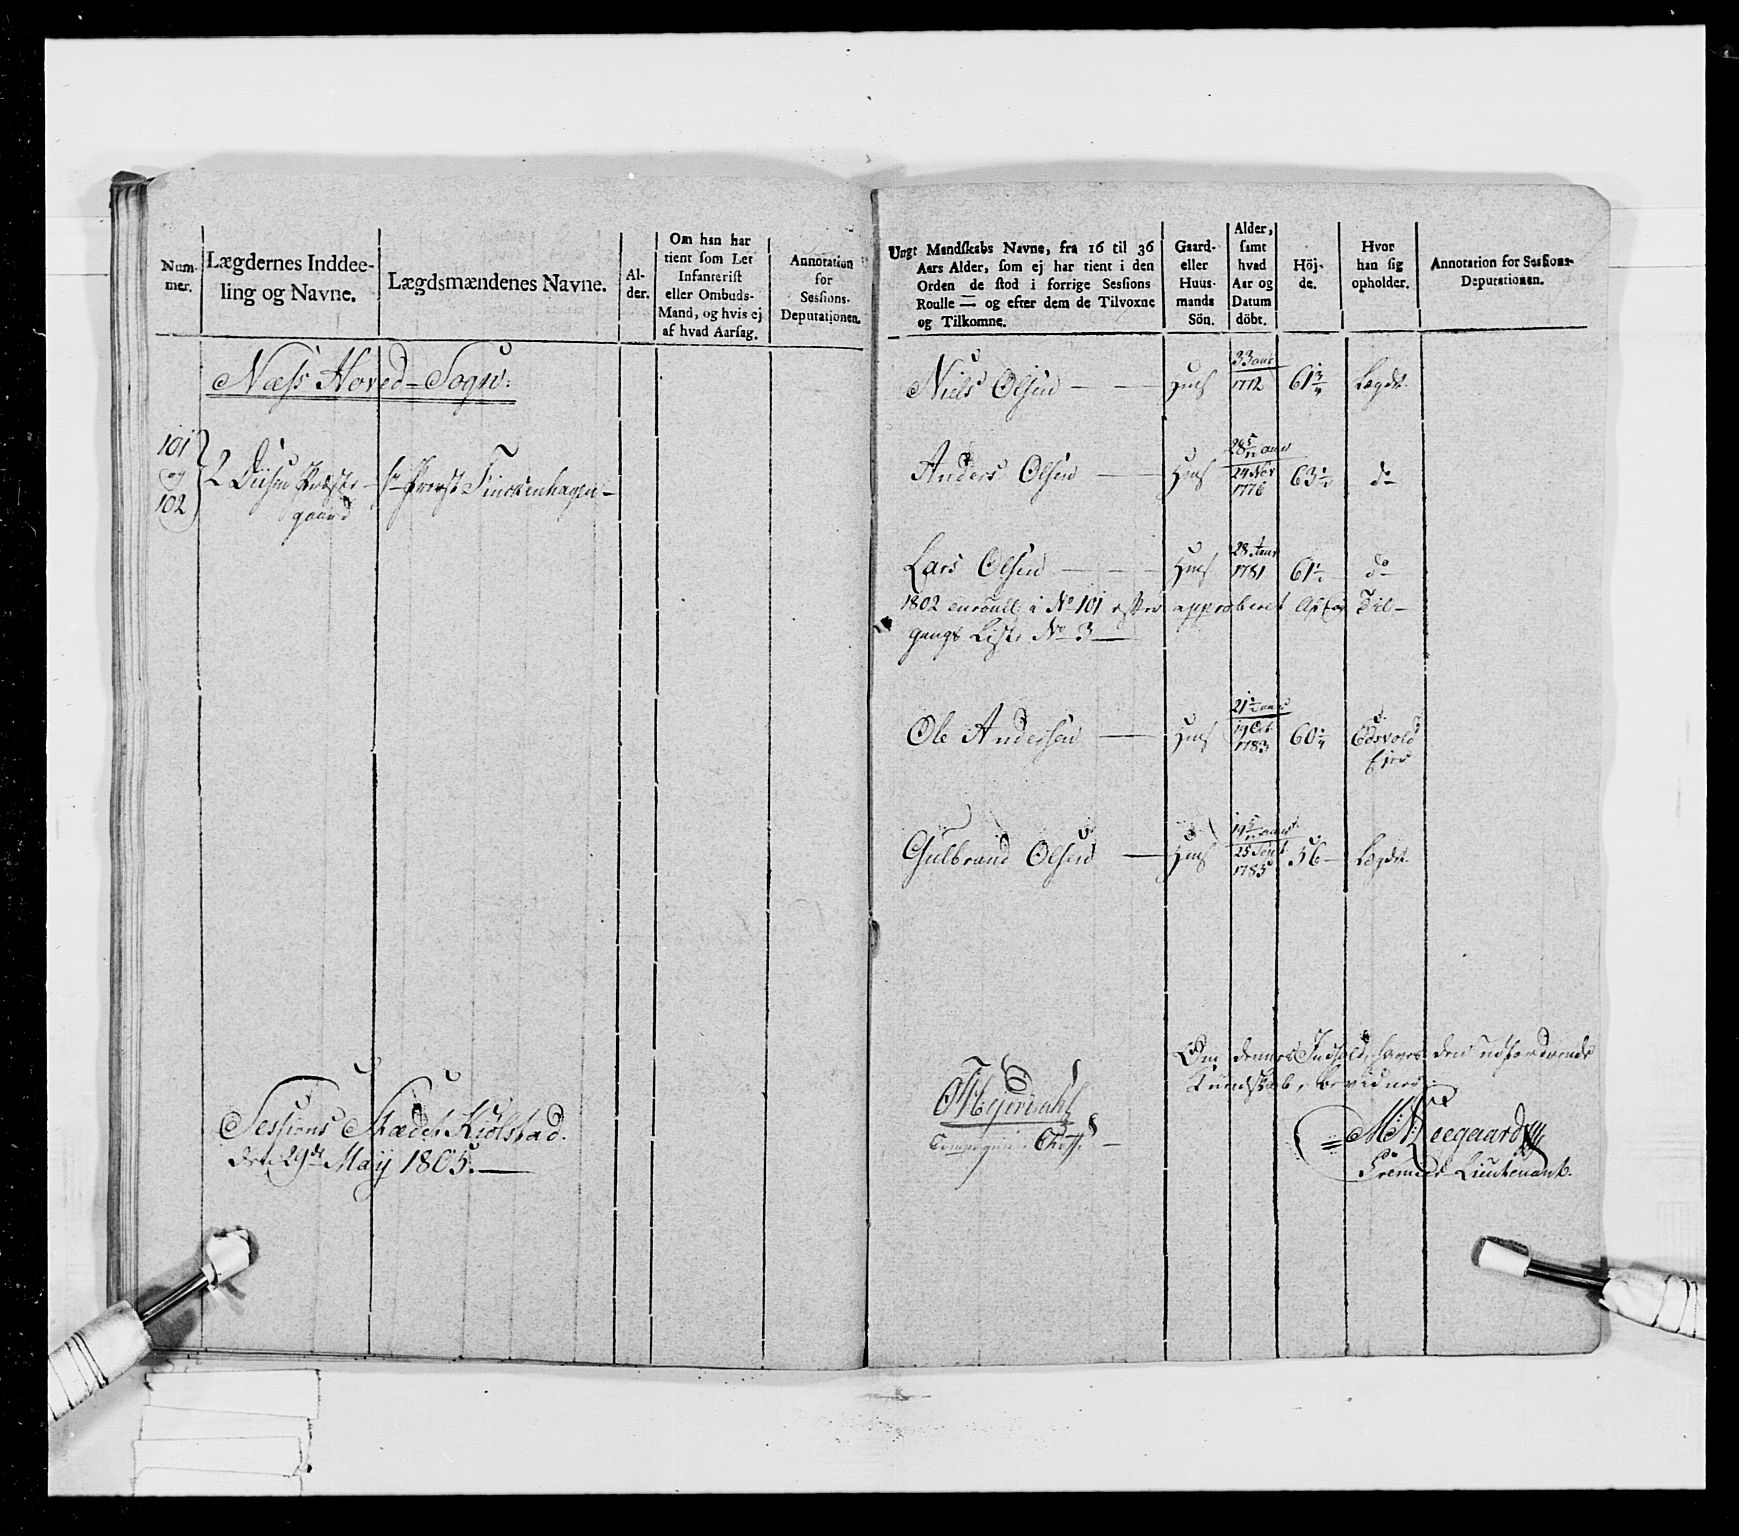 Num-
mer.
Lægdernes Inddee-
ling og Navne.
Lægdsmændenes Navne.
Al-
der.
Om han har
tient som Let
Infanterist
eller Ombuds-
Mand, og hvis ej
af hvad Aarsag.
Annotation
for
Sessions-
Deputationen.
Næss Hoved-Sogn:
101
og
102
2 Præste-
gaard
Provst Finckenhagen
Sessions Stædet Kiölstad
den 29de Maij 1805.
Ungt Mandskabs Navne, fra 16 til 36
Aars Alder, som ej har tient i den
Orden de stod i forrige Sessions
Roulle — og efter dem de Tilvoxne
og Tilkomne.
Gaard-
eller
Huus-
mands
Sön.
Alder,
samt
hvad
Aar og
Datum
döbt.
Höj-
de.
Hvor
han sig
opholder.
Annotation for Sessions-
Deputationen.
Niels Olsen — Huus 33 aar 1772 61 3/4 Lægdet
Anders Olsen — Huus 28 5/12 aar 24 Nov 1776 63 1/2 do
Lars Olsen — Huus 23 aar 1781 61 1/2 do
1802 enroull: i No 101 efter approberet Til-
gangs Liste No 3 —
Ole Andersen — Huus 21 1/2 aar 19 Oct 1783 60 1/4 Edsvold
Gulbrand Olsen — Huus 19 5/12 aar 25 1785 56 — Lægdet
Om dennes Indhold haves den udfordrende
Kundskab, bevidner
Mejdahl
Compagnie Chef
M: Neegaard
Premier Lieutenant.